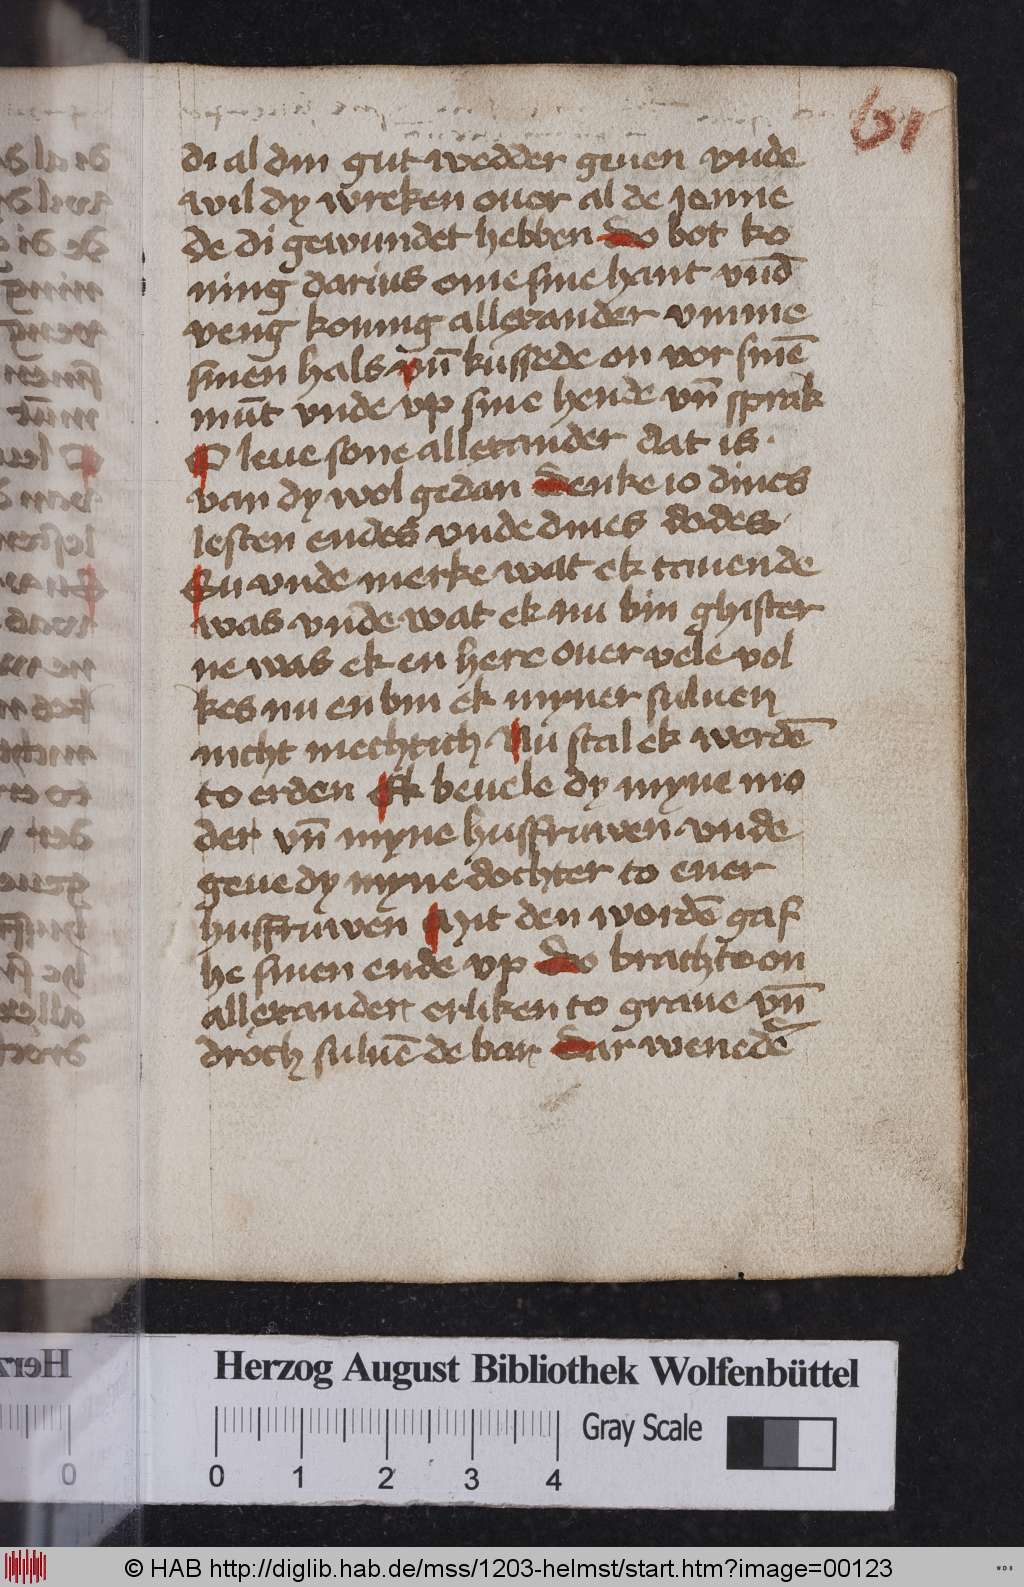 61
di al din gut wedder geuen vnde
wil dy wreken ouer al de jenne
de di gewundet hebben do bot ko
ning darius ome sine hant vnd̄
veng koning allexander vmme
sinen hals vn̄ kussede on vor sinē
mūt vnde vp sine hende vn̄ sprak
O leue sone allexander dat is·
van dy wol gedan denke io dines
lesten endes vnde dines dodes·
Su vnde merke wat ek tauende
was vnde wat ek nu bin ghister
ne was ek en here ouer vele vol
kes nu en bin ek myner suluen
nicht mechtich Nu scal ek werdē
to erden Ek beuele dy myne mo
der vn̄ myne husfruwen vnde
geue dy myne dochter to ener
husfruwen Mit den wordē gaf
he sinen ende vp do brachte on
allexander erliken to graue vn̄
droch suluē de bar dar wenedē
Herzog August Bibliothek Wolfenbüttel
Gray Scale
0 1 2 3 4
© HAB http://diglib.hab.de/mss/1203-helmst/start.htm?image=00123